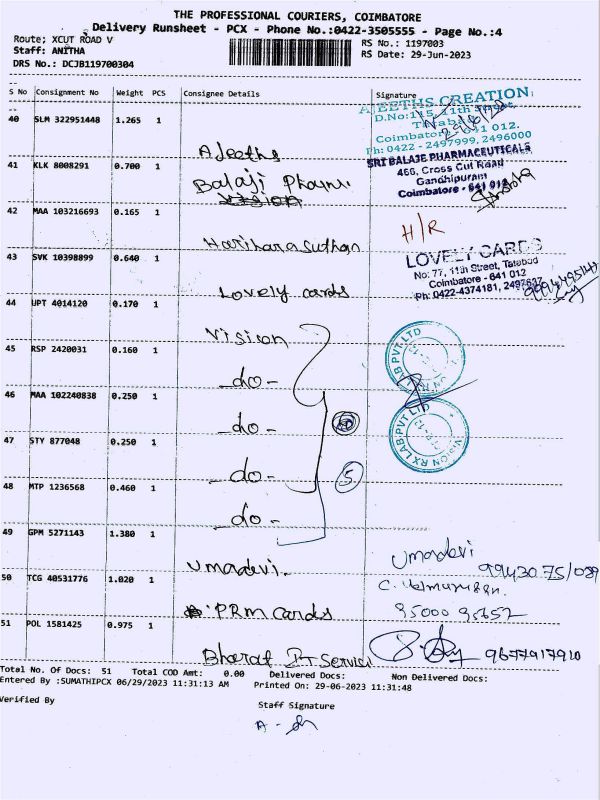 THE PROFESSIONAL COURIERS, COIMBATORE
Delivery Runsheet - PCX - Phone No.:0422-3505555 - Page No.:4
Route; XCUT ROAD V
RS No.: 1197003
Staff: ANITHA
RS Date: 29-Jun-2023
DRS No.: DCJB119700304
S No Consignment No Weight PCS Consignee Details Signature
40 SLM 322951448 1.265 1
Ajeeths
AJEETHS CREATION
D.No:115, 11th Street,
Coimbatore - 641 012.
Ph: 0422 - 2497999, 2496000
41 KLK 8008291 0.700 1
Balaji Pharm.
SRI BALAJE PHARMACEUTICALS
466, Cross Cut Road
Gandhipuram
Coimbatore - 641 012
42 MAA 103216693 0.165 1
Hariharasuthan
H/R
43 SVK 10398899 0.640 1
Lovely cards
LOVELY CARDS
No: 77, 11th Street, Tatabad
Coimbatore - 641 012
Ph: 0422-4374181, 2497627
44 UPT 4014120 0.170 1
Vision
45 RSP 2420031 0.160 1
-do-
46 MAA 102240838 0.250 1
-do-
VISION RX LAB PVT LTD
47 STY 877048 0.250 1
-do-
5
48 MTP 1236568 0.460 1
-do-
49 GPM 5271143 1.380 1
Umadevi.
Umadevi
50 TCG 40531776 1.020 1
PRM Cards
95000 95657
51 POL 1581425 0.975 1
Bharat IT Service
9677917910
Total No. Of Docs: 51 Total COD Amt: 0.00 Delivered Docs: Non Delivered Docs:
Entered By :SUMATHIPCX 06/29/2023 11:31:13 AM Printed On: 29-06-2023 11:31:48
Verified By
Staff Signature